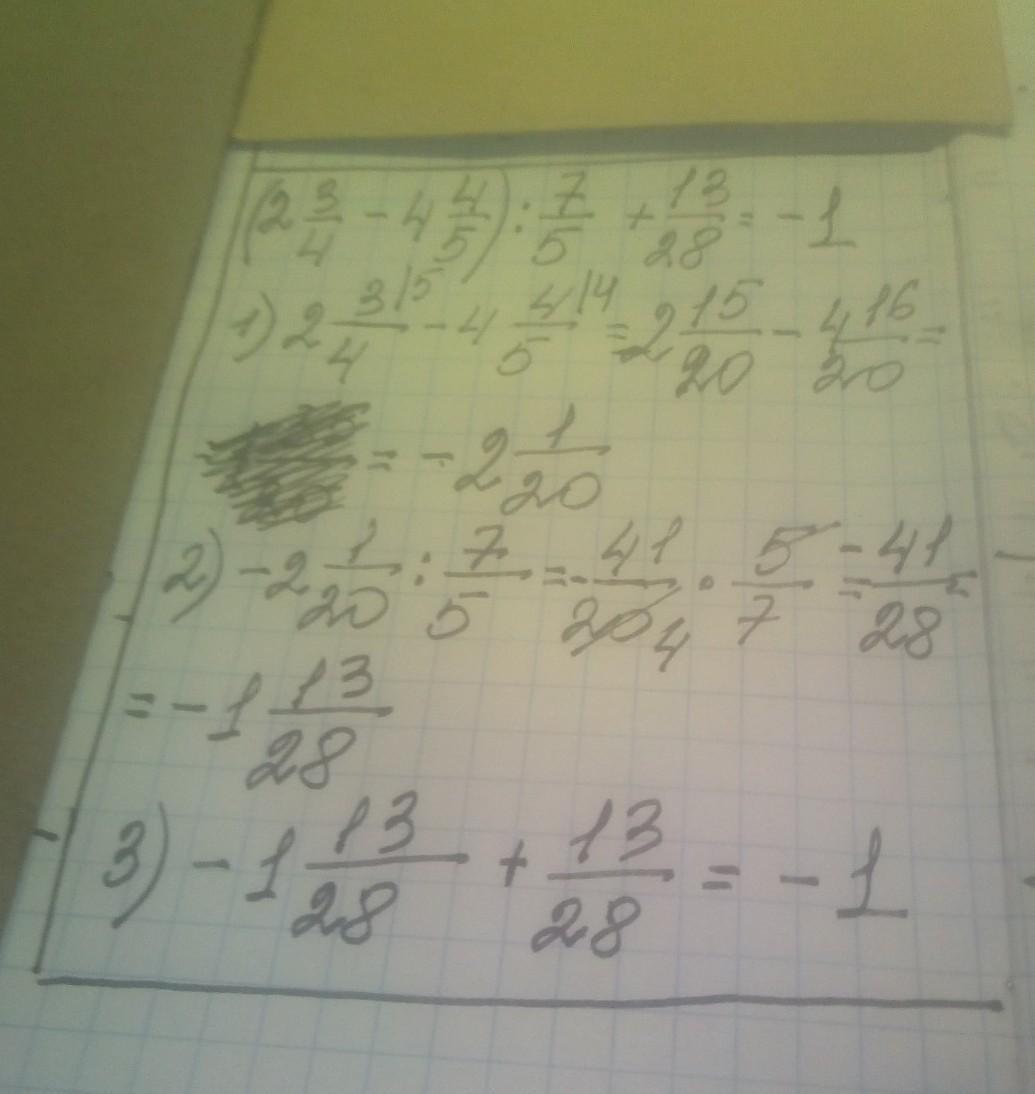 (2 3/4 - 4 4/5) : 7/5 + 13/28 = -1
1) 2 3|5/4 - 4 4|4/5 = 2 15/20 - 4 16/20 =
= -2 1/20
2) -2 1/20 : 7/5 = -41/20 4 · 5/7 = -41/28 =
= -1 13/28
3) -1 13/28 + 13/28 = -1